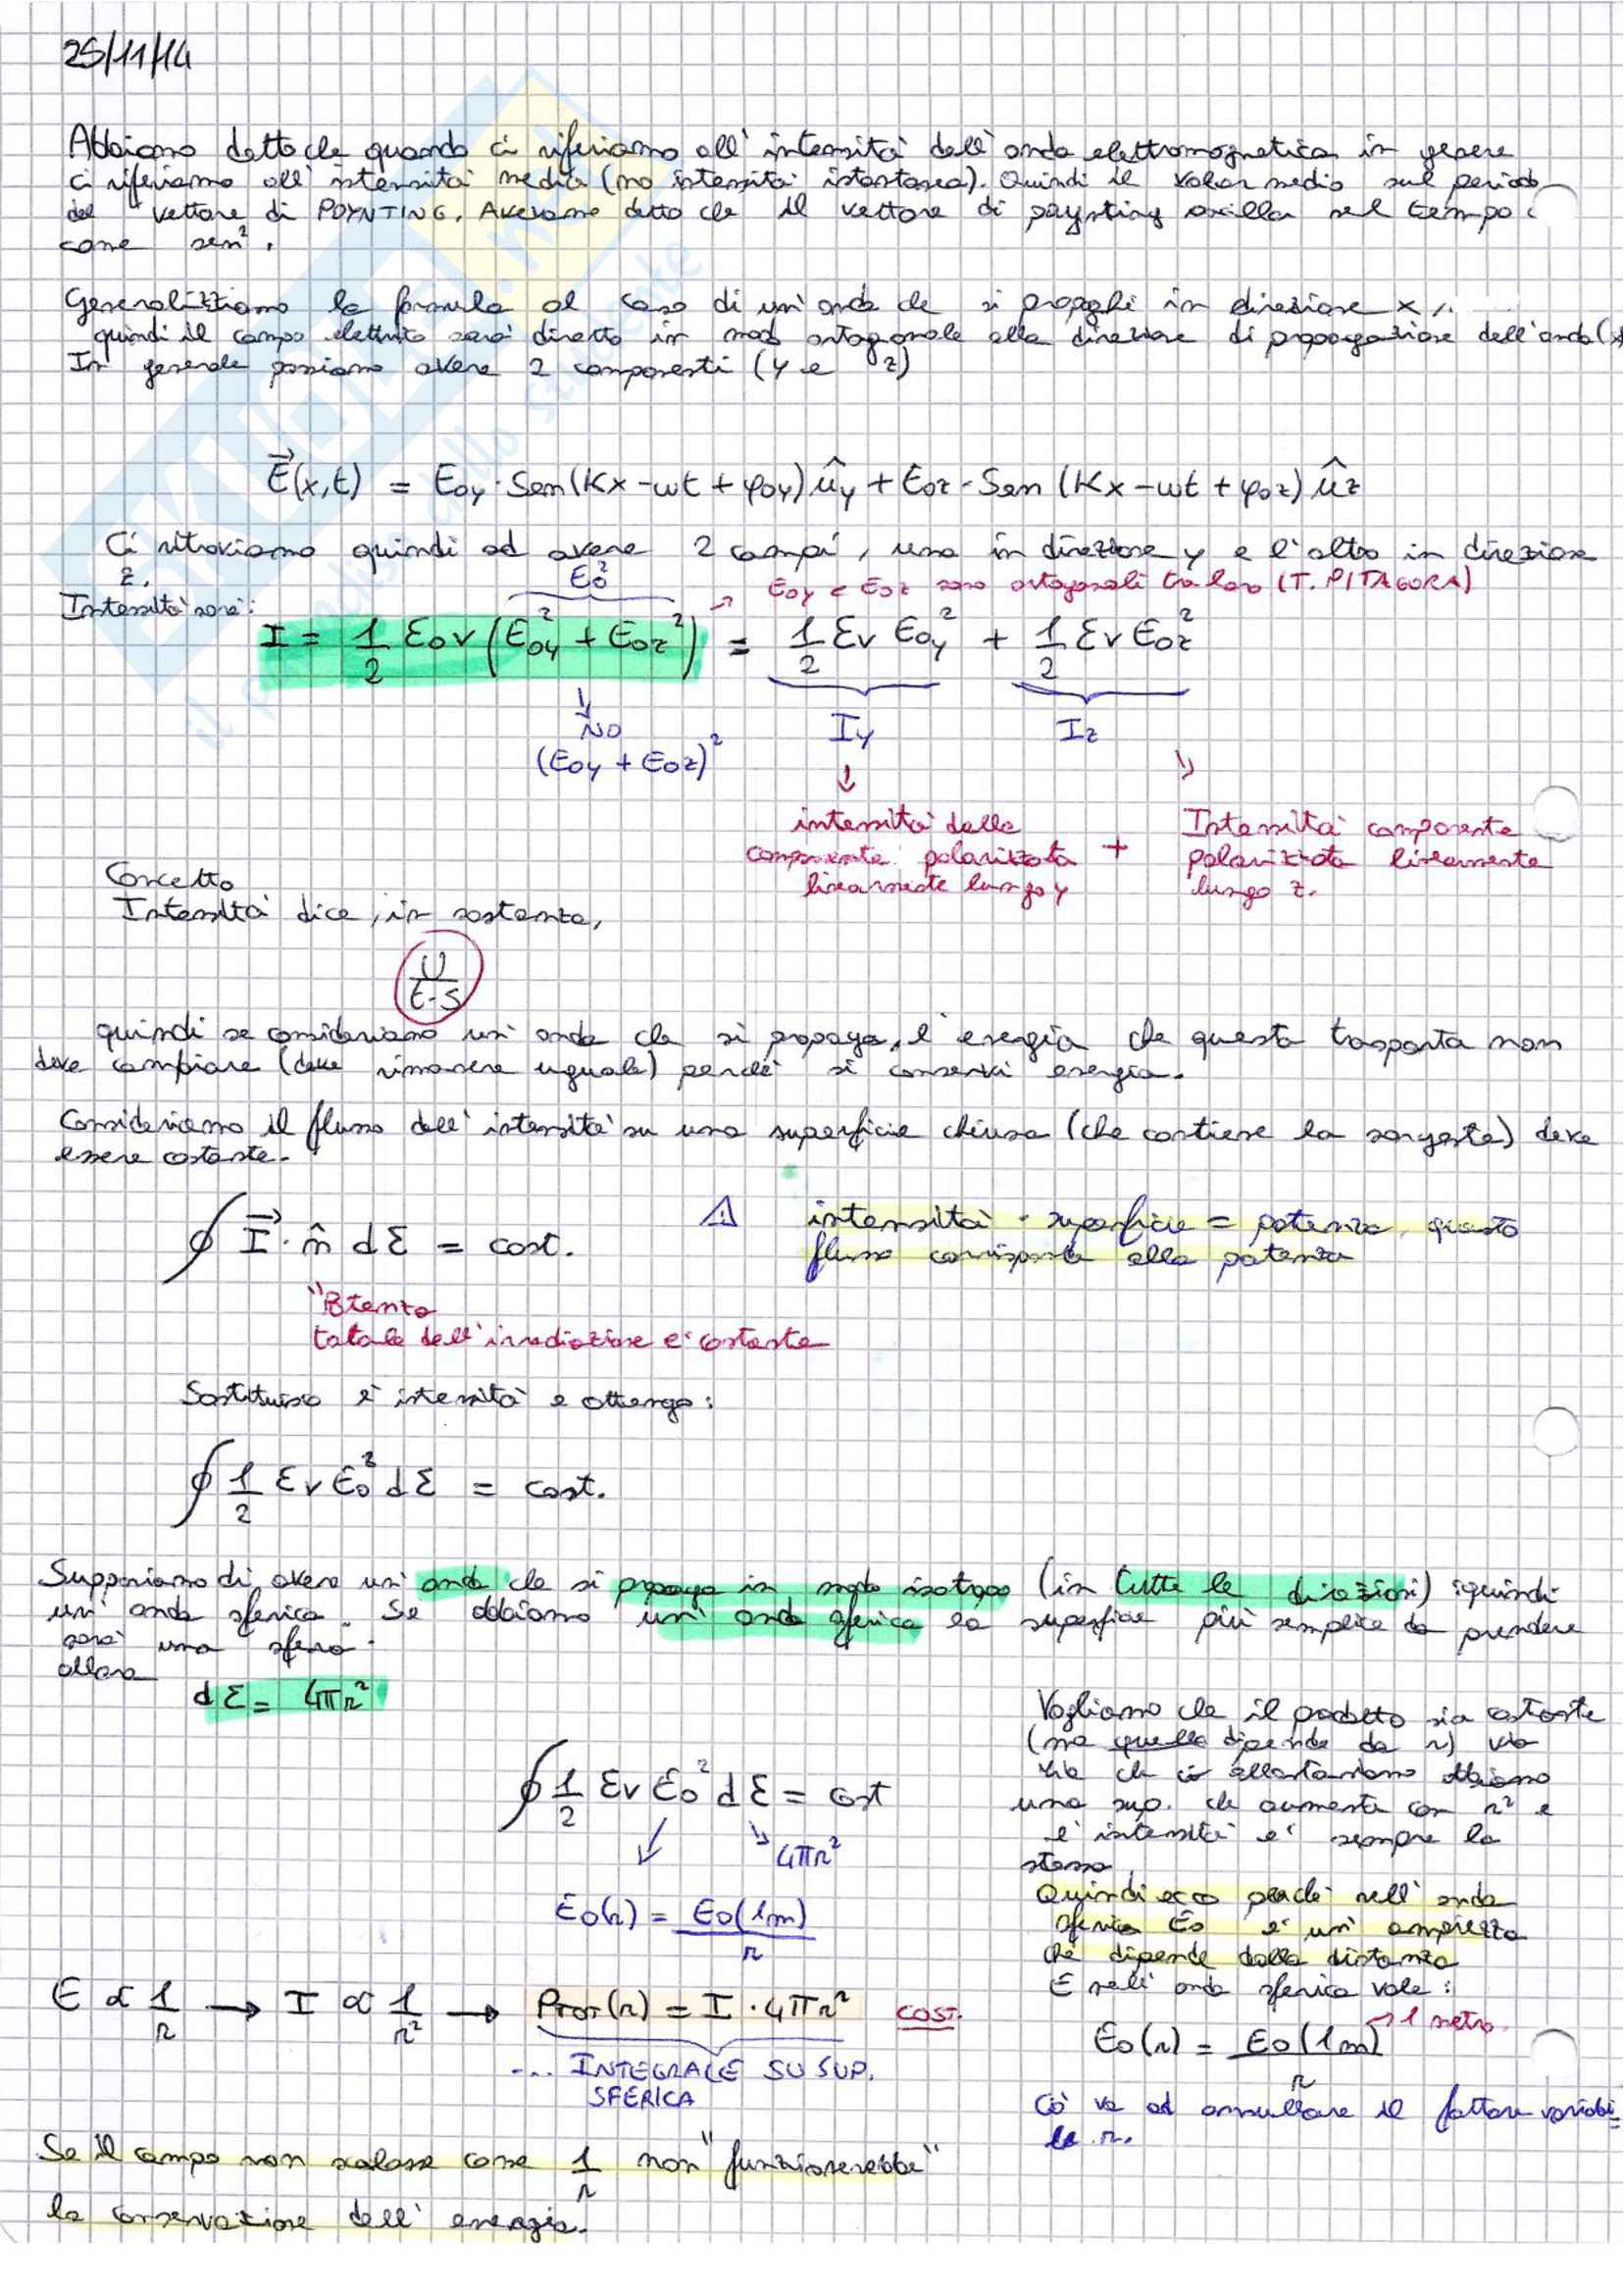 25/11/14
Abbiamo detto che quando ci riferiamo all'intensità dell'onda elettromagnetica in genere
ci riferiamo all'intensità media (no intensità istantanea). Quindi il valor medio sul periodo
del vettore di POYNTING. Avevamo detto che il vettore di poynting oscilla nel tempo
come sen².
Generalizziamo la formula al caso di un'onda che si propaghi in direzione x
quindi il campo elettrico sarà diretto in modo ortogonale alla direzione di propagazione dell'onda (x
In generale possiamo avere 2 componenti (y e z)
E⃗(x,t) = E0y · Sen(Kx-ωt + φ0y) ûy + E0z · Sen (Kx-ωt + φ0z) ûz
Ci ritroviamo quindi ad avere 2 campi, uno in direzione y e l'altro in direzione
z.
E0²
E0y e E0z sono ortogonali tra loro (T. PITAGORA)
Intensità sarà:
I = 1/2 ε0v (E0y² + E0z²) = 1/2 εv E0y² + 1/2 εv E0z²
NO
(E0y + E0z)²
Iy
Iz
intensità della
componente polarizzata
linearmente lungo y
+
Intensità componente
polarizzata linearmente
lungo z.
Concetto
Intensità dice, in sostanza,
U/t·S
quindi se consideriamo un'onda che si propaga, l'energia che questa trasporta non
deve cambiare (deve rimanere uguale) perchè si conserva energia.
Consideriamo il flusso dell'intensità su una superficie chiusa (che contiene la sorgente) deve
essere costante.
∮ I⃗ · n̂ dΣ = cost.
⚠ intensità · superficie = potenza, questo
flusso corrisponde alla potenza
"Potenza
totale dell'irradiazione è costante
Sostituisco l'intensità e ottengo:
∮ 1/2 εv E0² dΣ = cost.
Supponiamo di avere un'onda che si propaga in modo isotropo (in tutte le direzioni) quindi
un'onda sferica. Se abbiamo un'onda sferica la superficie più semplice da prendere
sarà una sfera
allora
dΣ = 4πr²
∮ 1/2 εv E0² dΣ = cost
4πr²
E0(r) = E0(1m)/r
Vogliamo che il prodotto sia costante
(ma quello dipende da r) via
via che ci allontaniamo abbiamo
una sup. che aumenta con r² e
l'intensità è sempre la
stessa.
Quindi ecco perchè nell'onda
sferica E0 è un'ampiezza
che dipende dalla distanza
E nell'onda sferica vale:
1 metro
E0(r) = E0(1m)/r
Ciò va ad annullare il fattore variabi-
le r.
E ∝ 1/r → I ∝ 1/r² → PTOT(r) = I · 4πr² COST.
... INTEGRALE SU SUP.
SFERICA
Se il campo non scalasse come 1/r non "funzionerebbe"
la conservazione dell'energia.